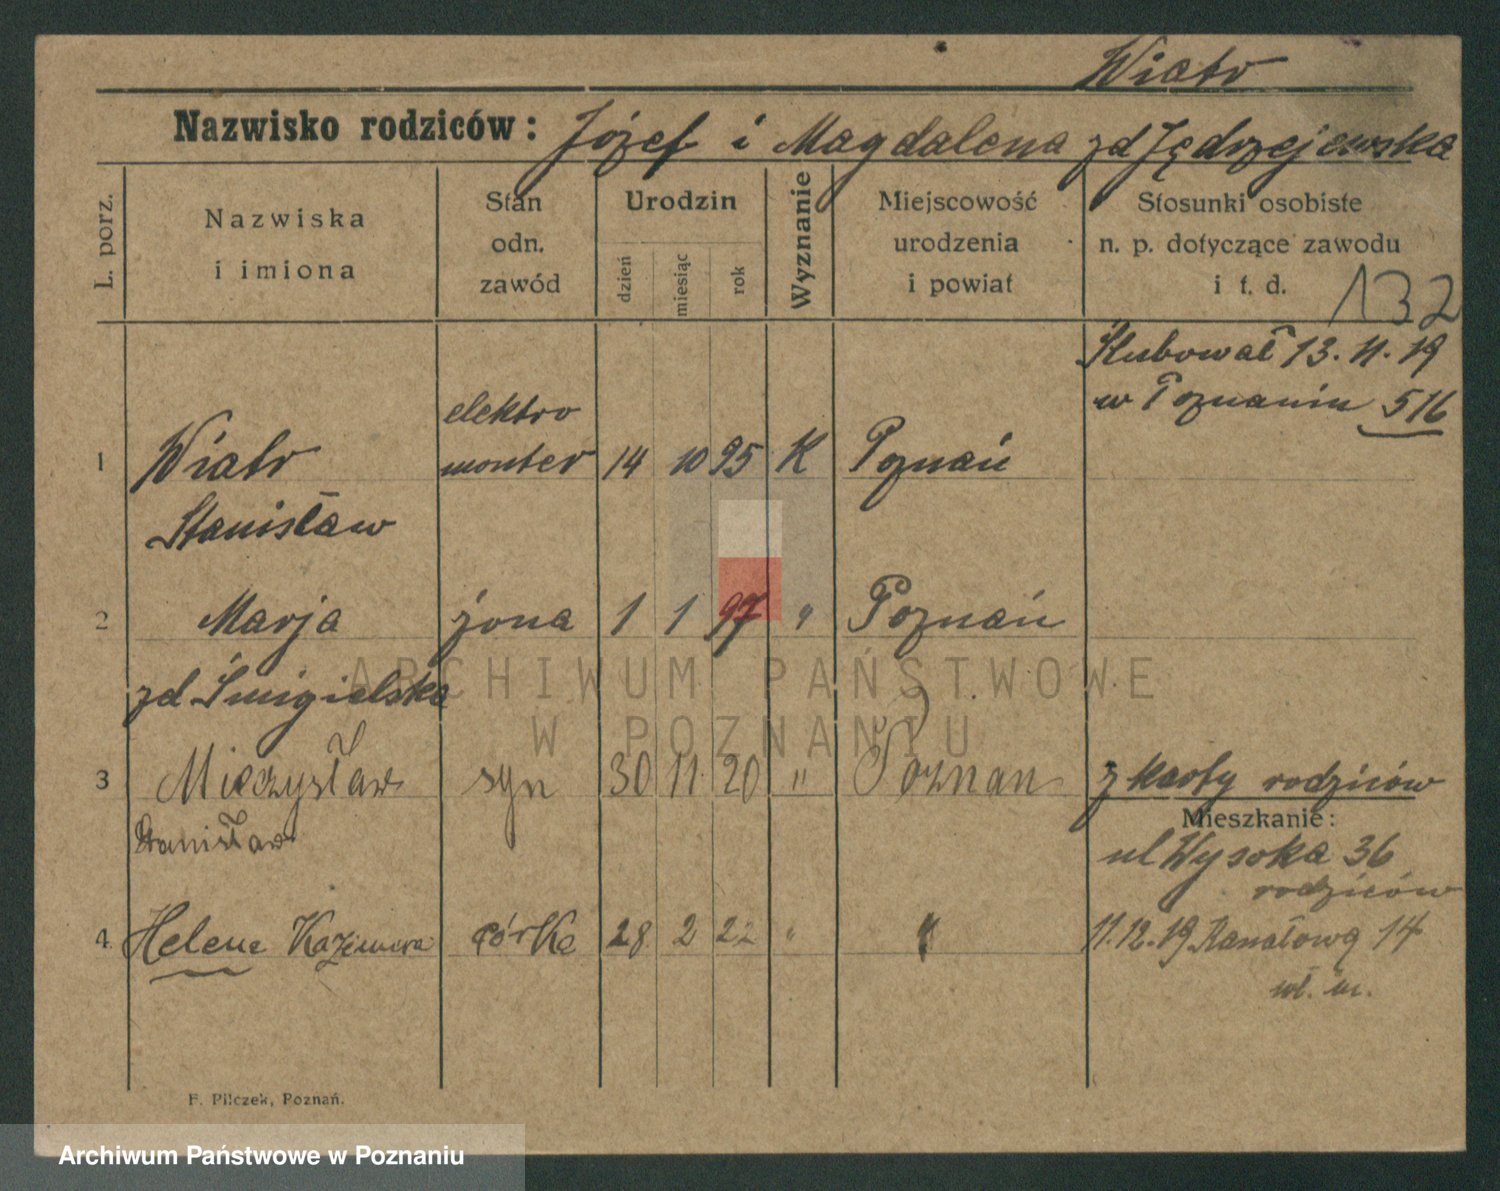 Wiatr
Nazwisko rodziców: Józef i Magdalena zd Jędrzejewska
L. porz.
Nazwiska
i imiona
Stan
odn.
zawód
Urodzin
dzień
miesiąc
rok
Wyznanie
Miejscowość
urodzenia
i powiat
Stosunki osobiste
n. p. dotyczące zawodu
i t. d.
132
Ślubował 13.11.19
w Poznaniu 516
elektro
1 Wiatr monter 14 10 95 K Poznań
Stanisław
2 Marja żona 1 1 97 " Poznań
zd Śmigielska
ARCHIWUM PAŃSTWOWE
W POZNANIU
3 Mieczysław syn 30 11. 20 " Poznań z karty rodziców
Mieszkanie:
Stanisław ul Wysoka 36
rodziców
4 Helena Kazimiera córka 28 2 22 " " 11.12.19 Kanałowa 14
wł. m.
F. Pilczek, Poznań.
Archiwum Państwowe w Poznaniu